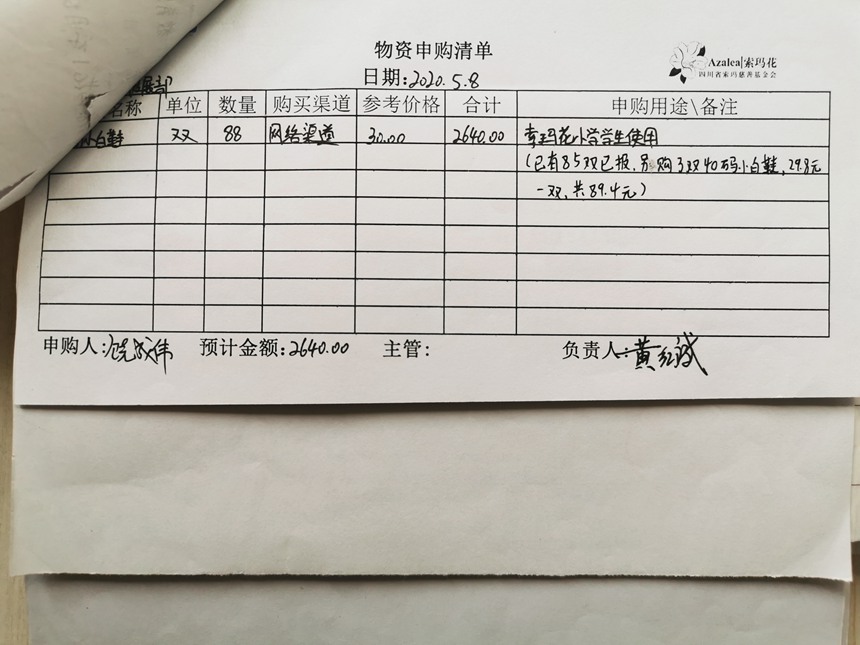 物资申购清单
Azalea|索玛花
四川省索玛慈善基金会
日期:2020.5.8
展部
名称 单位 数量 购买渠道 参考价格 合计 申购用途\备注
小白鞋 双 88 网络渠道 30.00 2640.00 索玛花小学学生使用
(已有85双已报,另购3双40码小白鞋,29.8元
一双,共89.4元)
申购人: 预计金额:2640.00 主管: 负责人:黄红诚